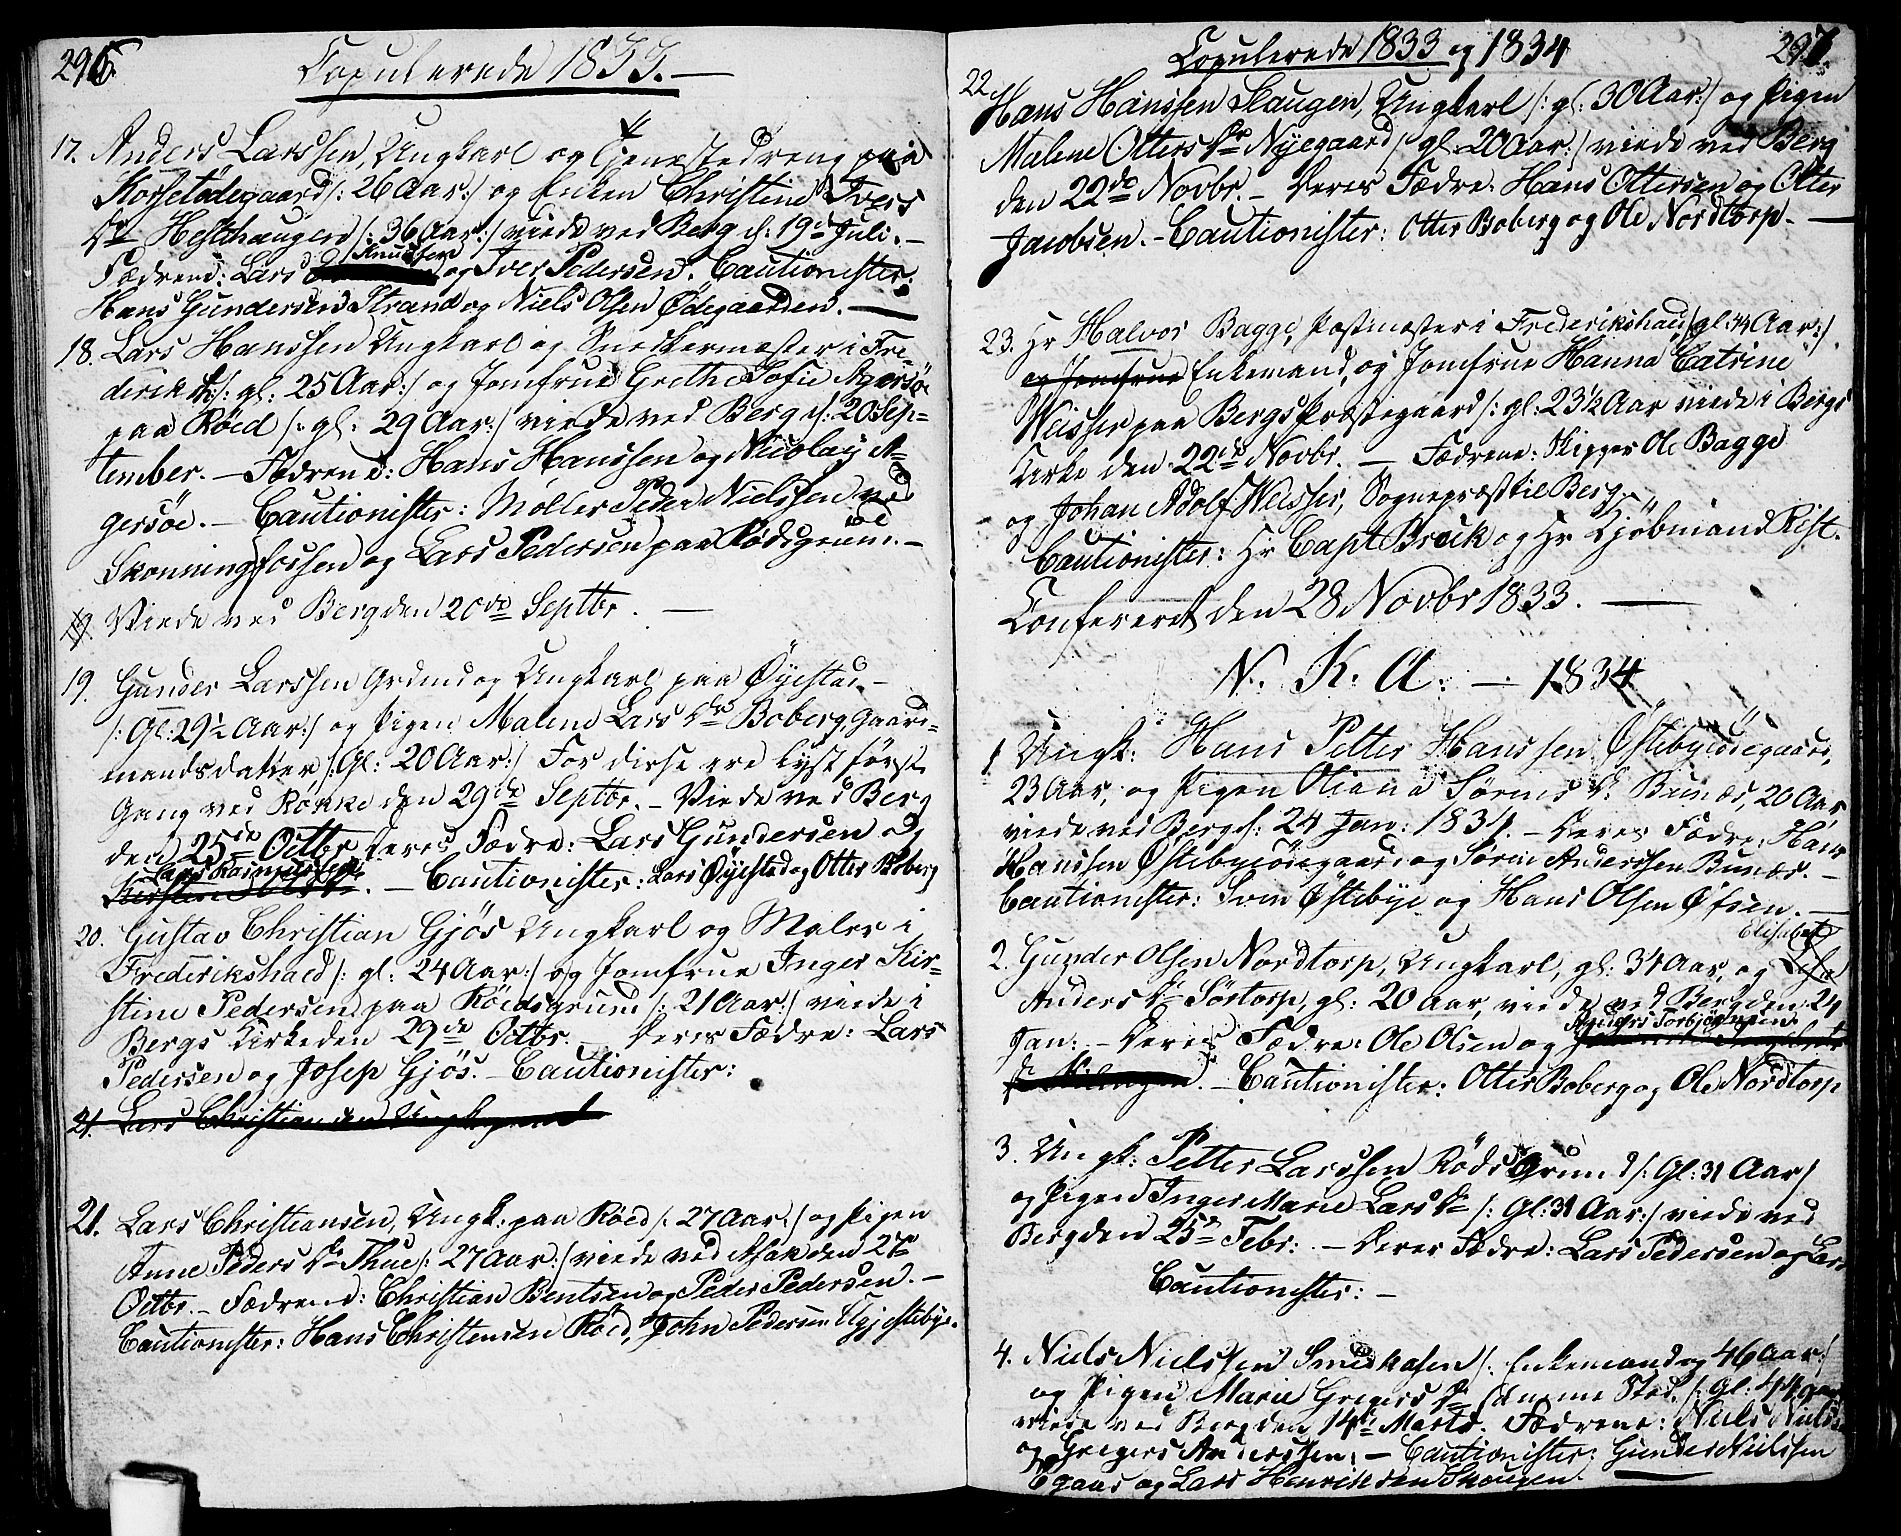 296
Copulerede 1833. —
17. Anders Larssen, Ungkarl og Tjenestedreng paa
Korsetødegaard /: 26 Aar :/ og Enken Christine Ivers
Dr Hesthaugen /: 36 Aar :/ viede ved Berg d: 19de Juli. —
Fædrene: Lars Knudsen og Iver Pedersen. Cautionister:
Hans Gundersen Strand og Niels Olsen Ødegaarden. —
18. Lars Hanssen Ungkarl og Snedkermester i Fre-
derikh: /: gl: 25 Aar :/ og Jomfrue Grethe Sofie Agersöe
paa Röed /: gl: 29 Aar :/ viede ved Berg d: 20 Sep-
tember. — Fædrene: Hans Hanssen og Nicolay A-
gersöe. — Cautionister: Møller Peder Nielssen ved
Skonningfossen og Lars Pedersen paa Rödsgrund. —
19. Viede ved Berg den 20de Septbr. —
19. Gunder Larssen Grdmd og Ungkarl paa Øyestad —
/: Gl: 29½ Aar :/ og Pigen Malene Lars Dr Boberg, Gaard-
mandsdatter /: Gl: 20 Aar :/ For disse ere lyst første
Gang ved Rokke den 29de Septbr. — Viede ved Berg
den 25de Octbr. Deres Fædre: Lars Gundersen og
Lars Rasmussen. — Cautionister: Lars Øyestad og Otter Boberg
20. Gustav Christian Gjös Ungkarl og Maler i
Frederikshald /: gl: 24 Aar :/ og Jomfrue Inger Kir-
stine Pedersen paa Röedsgrund /: 21 Aar :/ viede i
Bergs Kirke den 29de Octbr. — Deres Fædre: Lars
Pedersen og Josep Gjös. — Cautionister:
21. Lars Christiansen
21. Lars Christiansen, Ungk: paa Röed /: 27 Aar :/ og Pigen
Anne Peders Dr Thue /: 27 Aar :/ viede ved Asak den 27de
Octbr. — Fædrene: Christian Bentsen og Peder Pedersen. —
Cautionister: Hans Christensen Röed, John Pedersen
Copulerede 1833 og 1834
297.
22. Hans Hanssen Skaugen, Ungkarl /: gl: 30 Aar :/ og Pigen
Malene Otters Dr Nyegaard /: gl: 20 Aar :/ viede ved Berg
den 22de Novbr. — Deres Fædre: Hans Ottersen og Otter
Jacobsen. — Cautionister: Otter Boberg og Ole Nordtorp. —
23. Hr Halvor Bagge, Postmester i Frederikshald /: gl: 34 Aar :/
og Jomfrue Enkemand, og Jomfrue Hanna Catrine
Weisser paa Bergs Præstegaard /: gl: 23½ Aar viede i Bergs
Kirke den 22de Novbr. — Fædrene: Skipper Ole Bagge
og Johan Adolf Weisser, Sognepræst til Berg.
Cautionister: Hr Capt Bruk og Hr Kjöbmand Rist.
Confereret den 28 Novbr 1833. —
N. K. A: — 1834
1 Ungk: Hans Petter Hanssen Østebyeødegaard,
23 Aar, og Pigen Oliana Sörens D: Bunæs, 20 Aar
viede ved Berg d: 24 Jan: 1834. — Deres Fædre: Hans
Hanssen Østebyeødegaard og Sören Anderssen Bunæs. —
Cautionister: Sven Østebye og Hans Olsen Øfsen. —
2. Gunder Olsen Nordtorp, Ungkarl, gl: 31 Aar, og Elisabet
Anders Dr Sörtorp, gl: 20 Aar, viede ved Berg den 24
Jan: — Deres Fædre: Ole Olsen og Anders Torbjörnsen
— Cautionister: Otter Boberg og Ole Nordtorp
3. Ungk: Petter Larssen Rödsgrund /: Gl: 31 Aar /
og Pigen Inger Marie Lars Dr /: Gl: 31 Aar :/ viede ved
Berg den 25de Febr: — Deres Fædre: Lars Pedersen og Lars
Cautionister: —
4. Niels Nielssen Smedhasen /: Enkemand og 46 Aar :/
og Pigen Marie Gregers Dr samme Sted /: Gl: 44 Aar
viede ved Berg den 14de Marts. Fædrene: Niels Niels
og Gregers Anderssen. — Cautionister: Gunder Nielssen
og Lars Henriksen Skaugen. —